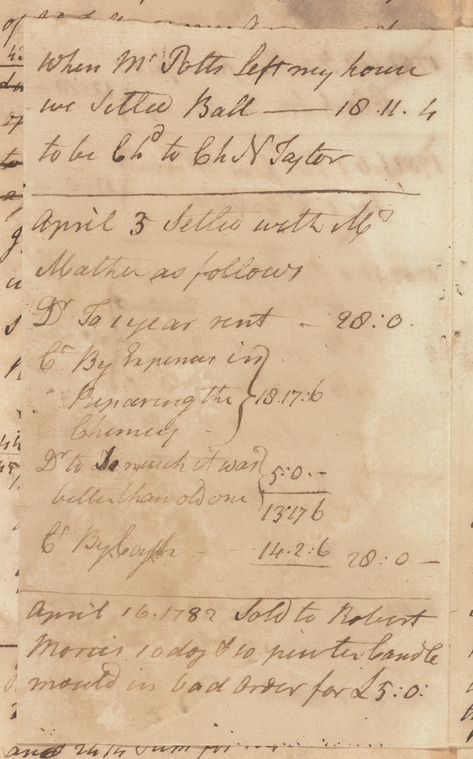 When Mr Potts left my house
we Settled Ball — 18.11.4
to be Chd to Ch N Taylor
April 3 Settled with Mr
Mather as follows
Dr To 1 year rent – 28:0.
Cr By Expences in
Repairing the } 18.17:6
Chimney
Dr to So much it was
better than old one } 5:0:-
13 17 6
Cr By Cash - 14.2:6 28:0 –
April 16. 1782 Sold to Robert
Morris 10 doz & 10 pewter Candle
mould in bad order for £5:0: